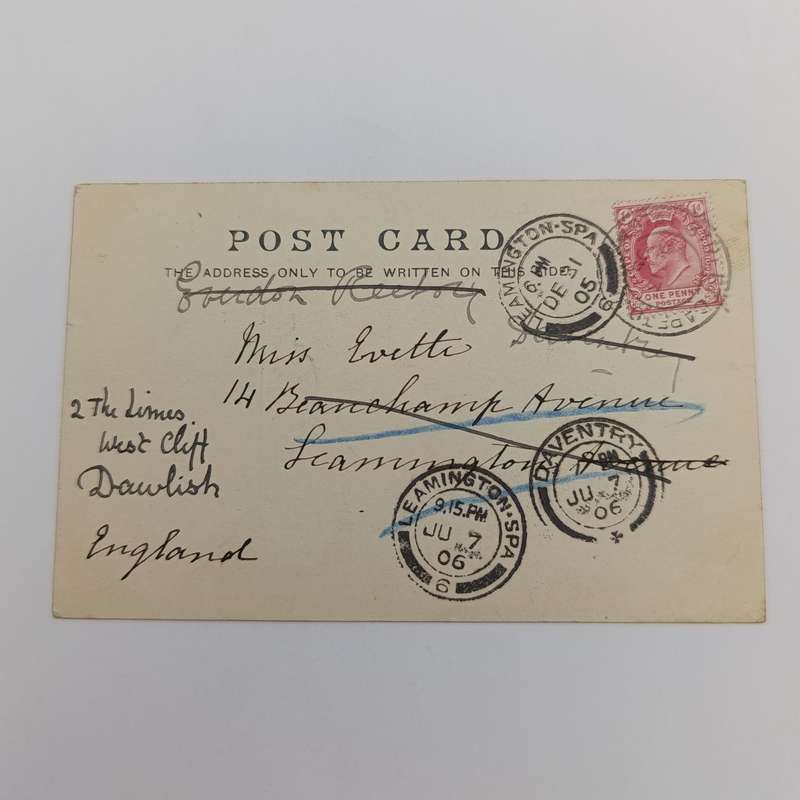 POST CARD
THE ADDRESS ONLY TO BE WRITTEN ON THIS SIDE
Rectory
Daventry
Miss Evette
14 Beauchamp Avenue
Leamington Avenue
2 The Limes
West Cliff
Dawlish
England
LEAMINGTON-SPA
6. PM
DE 31
05
ONE PENNY
POSTAGE
DAVENTRY
PM
JU 7
06
LEAMINGTON-SPA
9.15.PM
JU 7
06
6